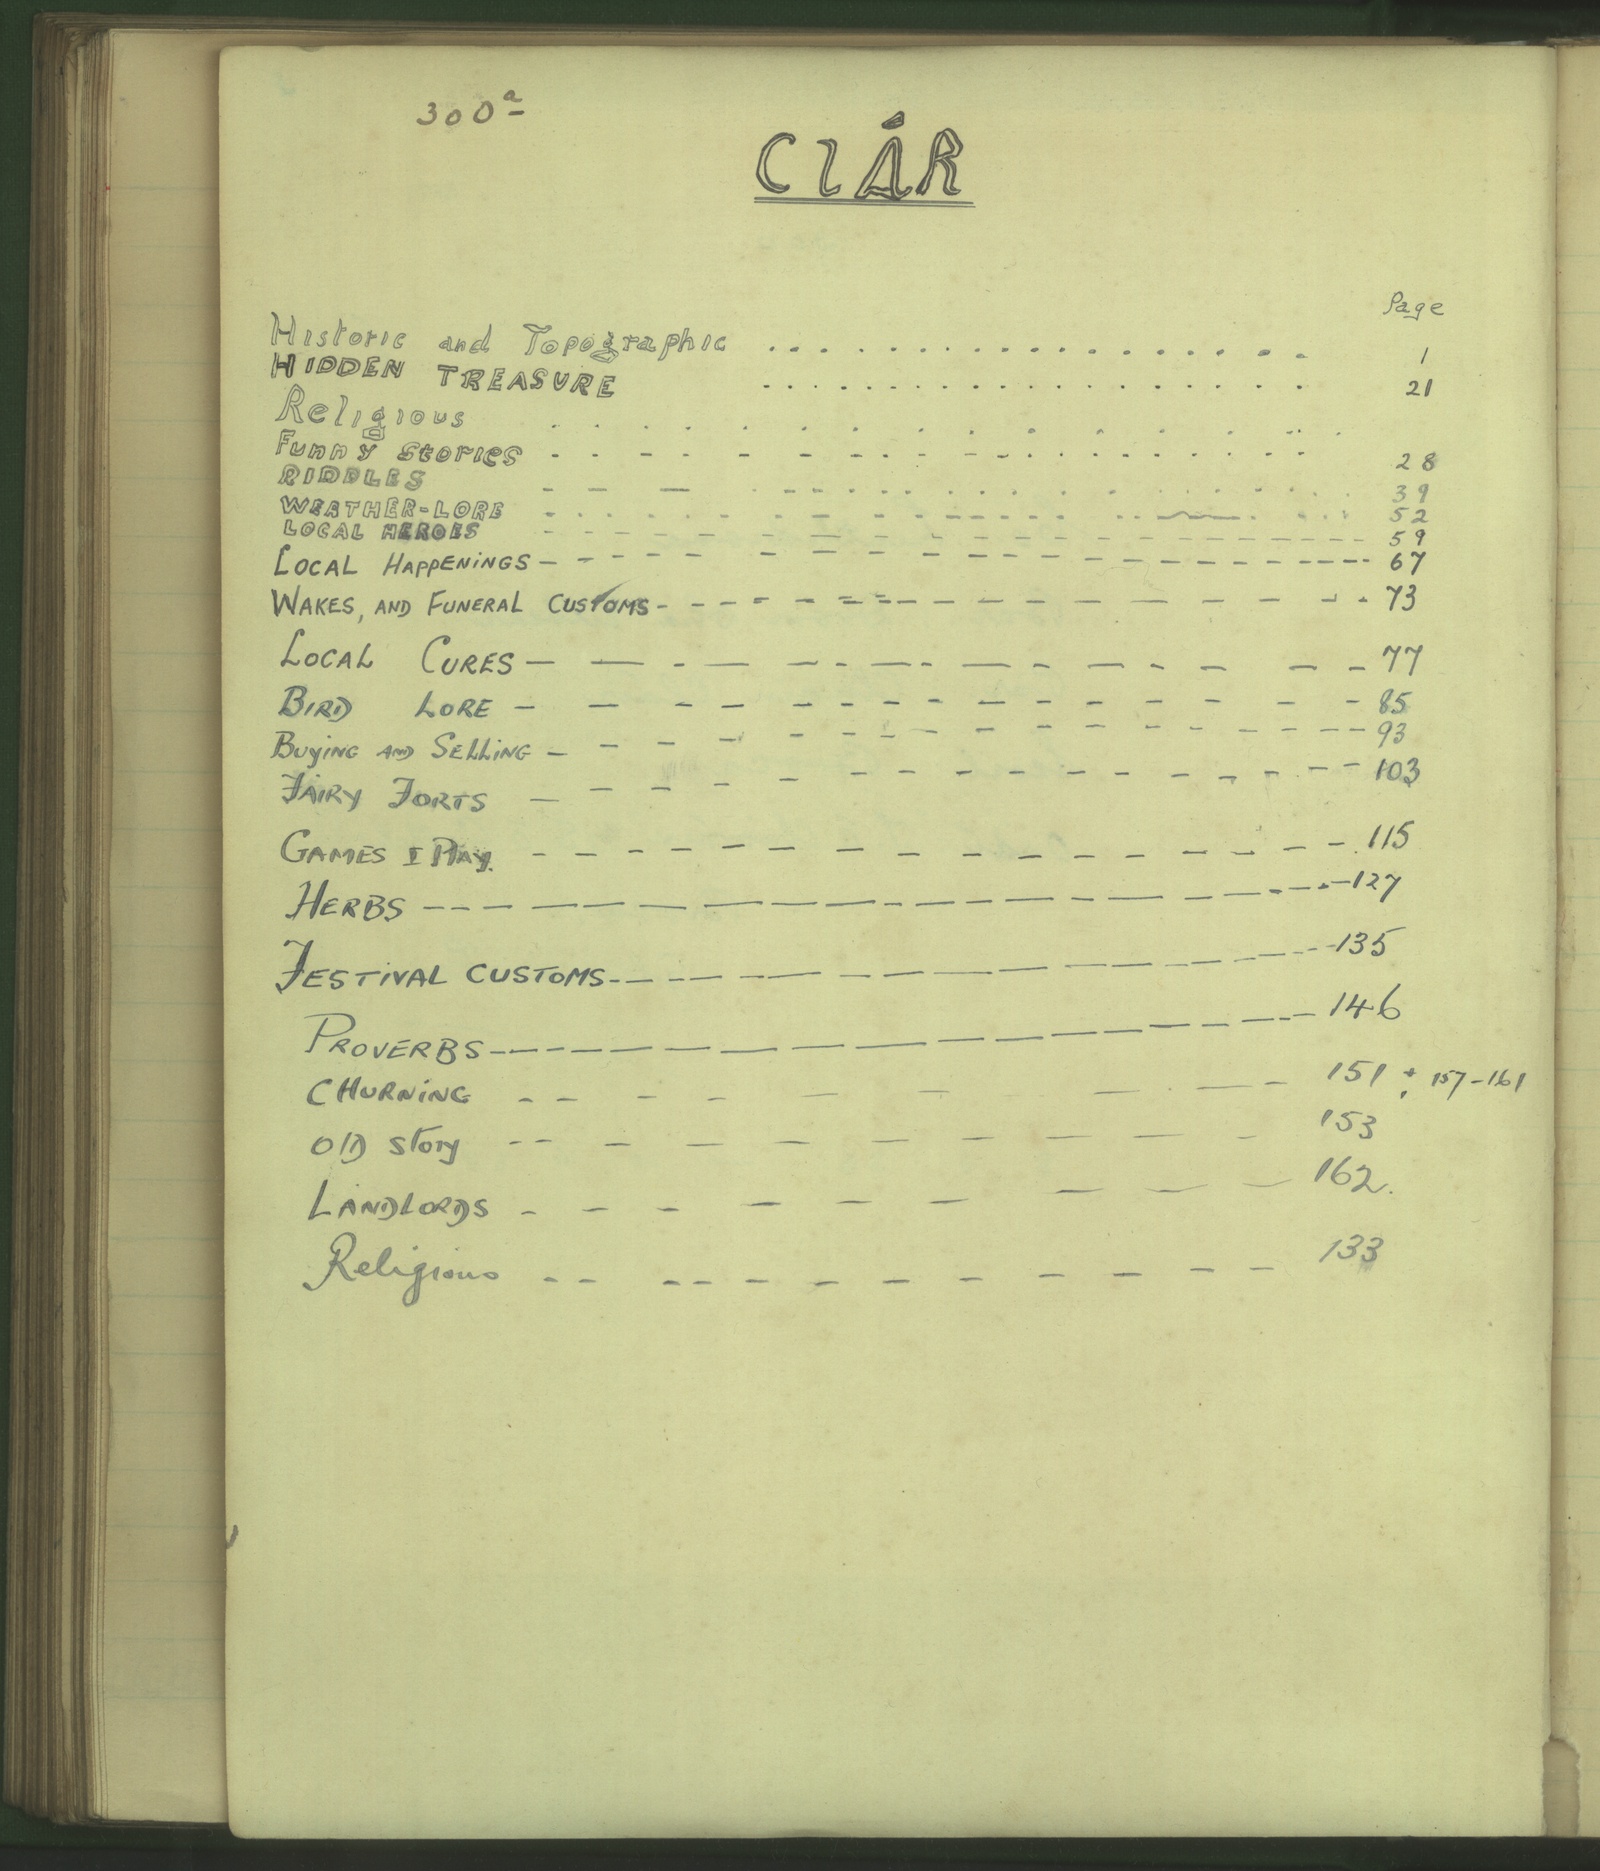 300a
CLÁR
Page
Historic and Topographic .................. 1
HIDDEN TREASURE .................. 21
Religious ..................
Funny Stories .................. 28
RIDDLES .................. 39
WEATHER-LORE .................. 52
LOCAL HEROES - - - - - - - - - - 59
LOCAL HAPPENINGS - - - - - - - - - - 67
WAKES, AND FUNERAL CUSTOMS - - - - - - - - - - 73
LOCAL CURES - - - - - - - - - - 77
BIRD LORE - - - - - - - - - - 85
Buying AND SELLING - - - - - - - - - - 93
FAIRY FORTS - - - - - - - - - - 103
GAMES I Play. - - - - - - - - - - 115
HERBS - - - - - - - - - - 127
FESTIVAL CUSTOMS - - - - - - - - - - 135
PROVERBS - - - - - - - - - - 146
CHURNING - - - - - - - - - - 151 + 157-161
OLD Story - - - - - - - - - - 153
LANDLORDS - - - - - - - - - - 162.
Religious - - - - - - - - - - 133